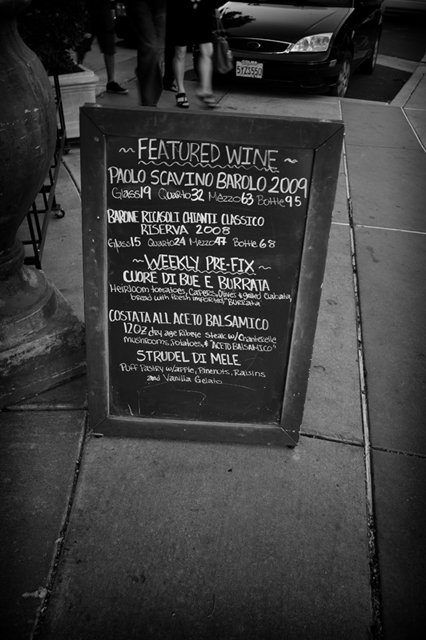 ~ FEATURED WINE ~
PAOLO SCAVINO BAROLO 2009
Glass 19 Quarto 32 Mezzo 63 Bottle 95
BARONE RICASOLI CHIANTI CLASSICO
RISERVA 2008
Glass 15 Quarto 24 Mezzo 47 Bottle 68
~ WEEKLY PRE-FIX ~
CUORE DI BUE E BURRATA
Heirloom tomatoes, Capers, Olives & grilled
bread with fresh imported "BURRATA
COSTATA ALL ACETO BALSAMICO
12oz dry age Ribeye Steak w/ Chanterelle
mushrooms, Potatoes, & "ACETO BALSAMICO"
STRUDEL DI MELE
Puff Pastry w/apple, Pinenuts, Raisins
and Vanilla Gelato